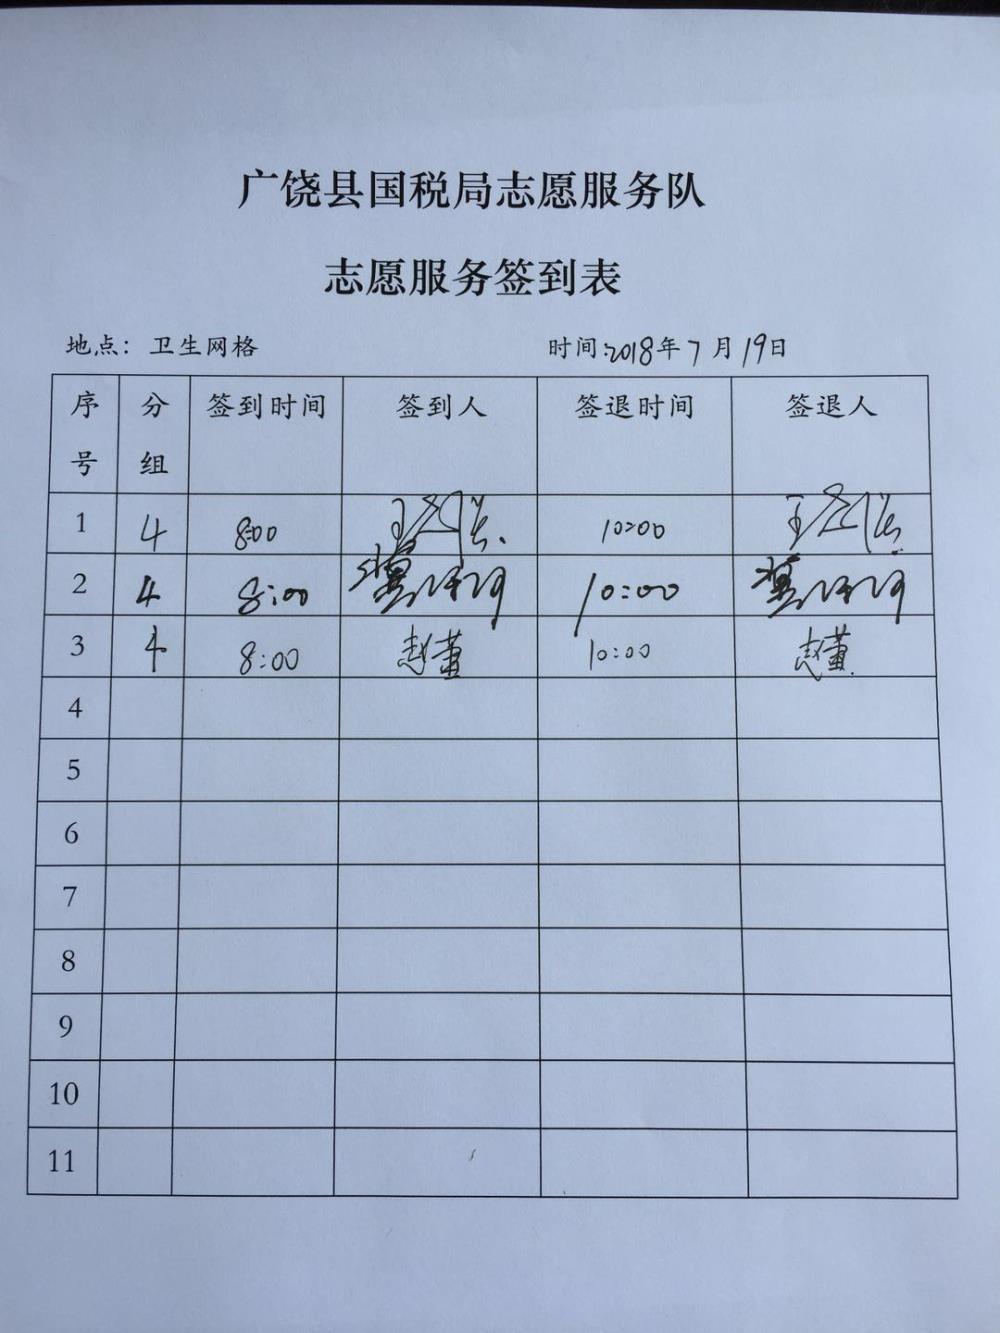 广饶县国税局志愿服务队
志愿服务签到表
地点：卫生网格 时间:2018年7月19日
序号 分组 签到时间 签到人 签退时间 签退人
1 4 8:00 10:00
2 4 8:00 10:00
3 4 8:00 赵董 10:00 赵董
4
5
6
7
8
9
10
11